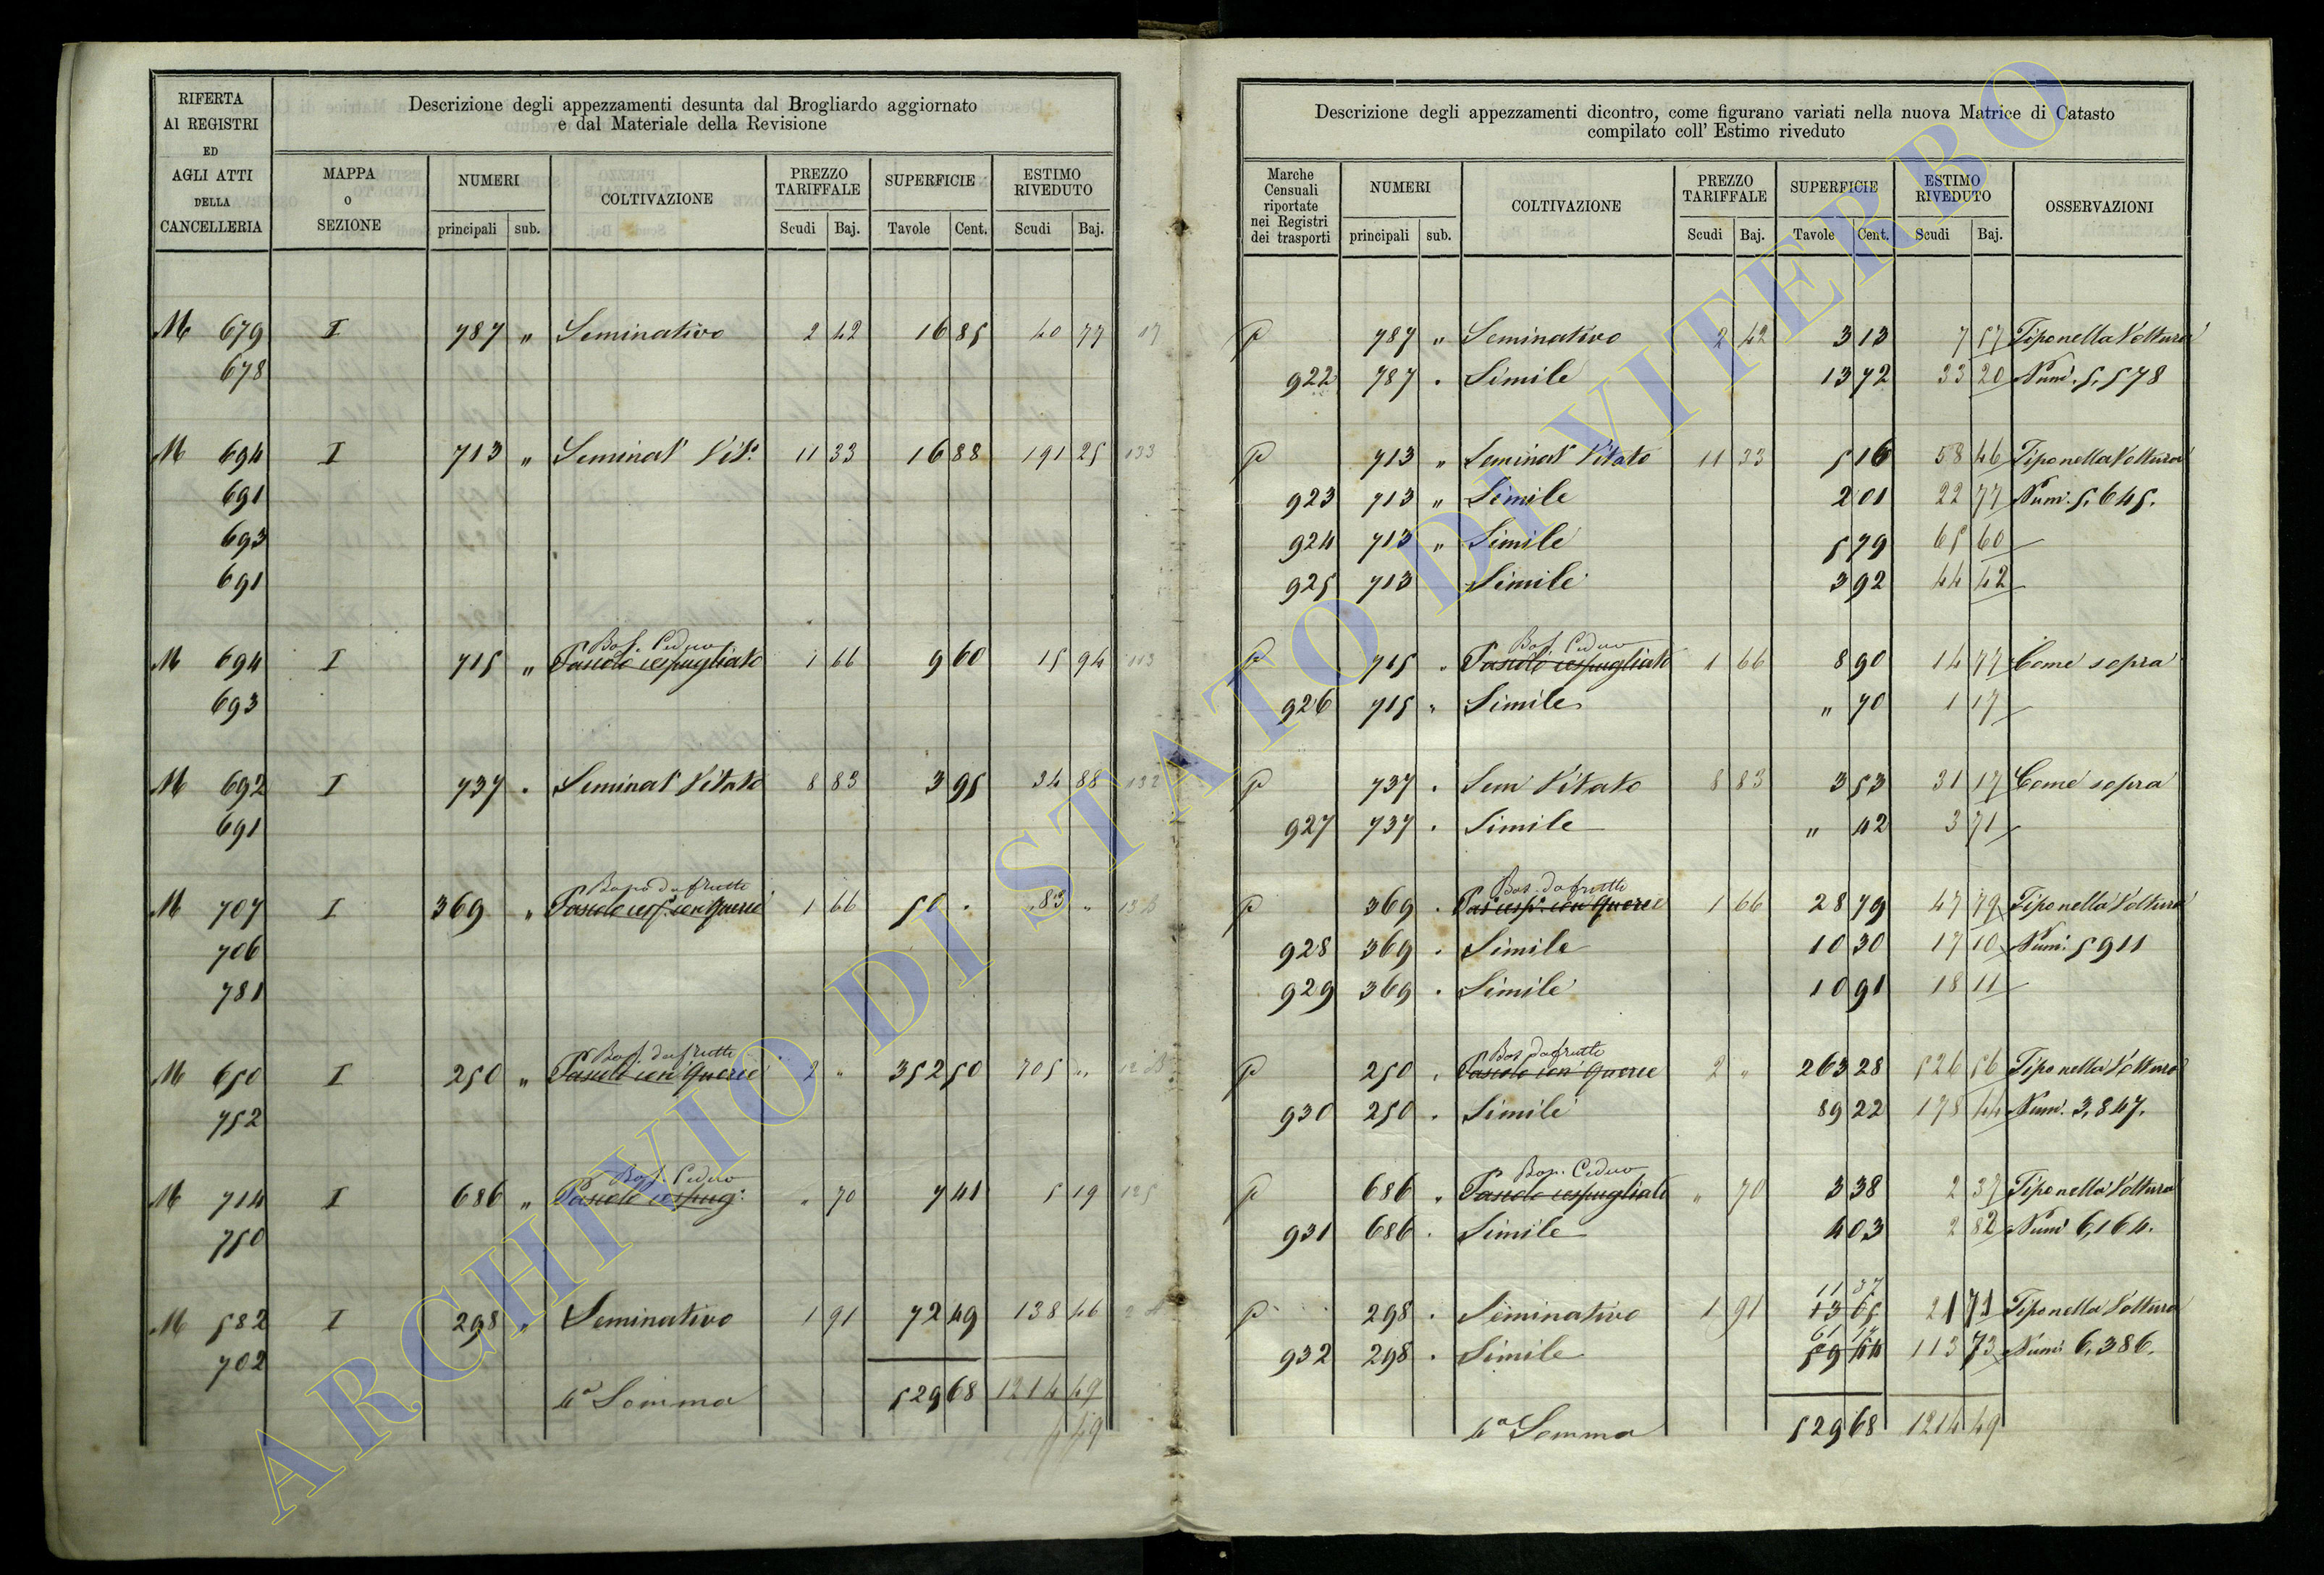 RIFERTA
AI REGISTRI
ED
AGLI ATTI
DELLA
CANCELLERIA
Descrizione degli appezzamenti desunta dal Brogliardo aggiornato
e dal Materiale della Revisione
MAPPA
o
SEZIONE
NUMERI
principali sub.
COLTIVAZIONE
PREZZO
TARIFFALE
Scudi Baj.
SUPERFICIE
Tavole Cent.
ESTIMO
RIVEDUTO
Scudi Baj.
M 679 I 787 " Seminativo 2 42 16 85 40 77 17
678
M 694 I 713 " Seminat Vit° 11 33 16 88 191 25 133
691
693
691
Bos. Ceduo
M 694 I 715 " Pascolo cespugliato 1 66 9 60 15 94 113
693
M 692 I 737 . Seminat Vitato 8 83 3 95 34 88 132
691
Bosco da frutto
M 707 I 369 " Pascolo cesp. con Querce 1 66 50 . 83 "
706
781
Bos. da frutto
M 650 I 250 " Pascolo con Querce 2 " 352 50 705 "
752
Bos. Ceduo
M 714 I 686 " Pascolo cespug. " 70 7 41 5 19 125
750
M 582 I 298 " Seminativo 1 91 72 49 138 46
702
4a Somma 529 68 1214 49
49
Descrizione degli appezzamenti dicontro, come figurano variati nella nuova Matrice di Catasto
compilato coll' Estimo riveduto
Marche
Censuali
riportate
nei Registri
dei trasporti
NUMERI
principali sub.
COLTIVAZIONE
PREZZO
TARIFFALE
Scudi Baj.
SUPERFICIE
Tavole Cent.
ESTIMO
RIVEDUTO
Scudi Baj.
OSSERVAZIONI
p 787 " Seminativo 2 42 3 13 7 57 Tipo nella Voltura
922 787 . Simile 13 72 33 20 Num. 5,578
p 713 " Seminat Vitato 11 33 5 16 58 46 Tipo nella Voltura
923 713 " Simile 2 01 22 77 Num. 5,645.
924 713 " Simile 5 79 65 60
925 713 Simile 3 92 44 42
Bos. Ceduo
p 715 . Pascolo cespugliato 1 66 8 90 14 77 Come sopra
926 715 " Simile " 70 1 17
p 737 . Sem Vitato 8 83 3 53 31 17 Come sopra
927 737 . Simile " 42 3 71
Bos. da frutto
p 369 . Pas cesp. con Querce 1 66 28 79 47 79 Tipo nella Voltura
928 369 . Simile 10 30 17 10 Num. 5911
929 369 . Simile 10 91 18 11
Bos da frutto
p 250 . Pascolo con Querce 2 " 263 28 526 56 Tipo nella Voltura
930 250 . Simile 89 22 178 44 Num. 3,847.
Bos. Ceduo
p 686 . Pascolo cespugliato " 70 3 38 2 37 Tipo nella Voltura
931 686 . Simile 4 03 2 82 Num 6,164.
11 37
p 298 . Seminativo 1 91 13 05 21 71 Tipo nella Voltura
61 12
932 298 . Simile 59 44 113 73 Num 6,386.
4a Somma 529 68 1214 49
ARCHIVIO DI STATO DI VITERBO